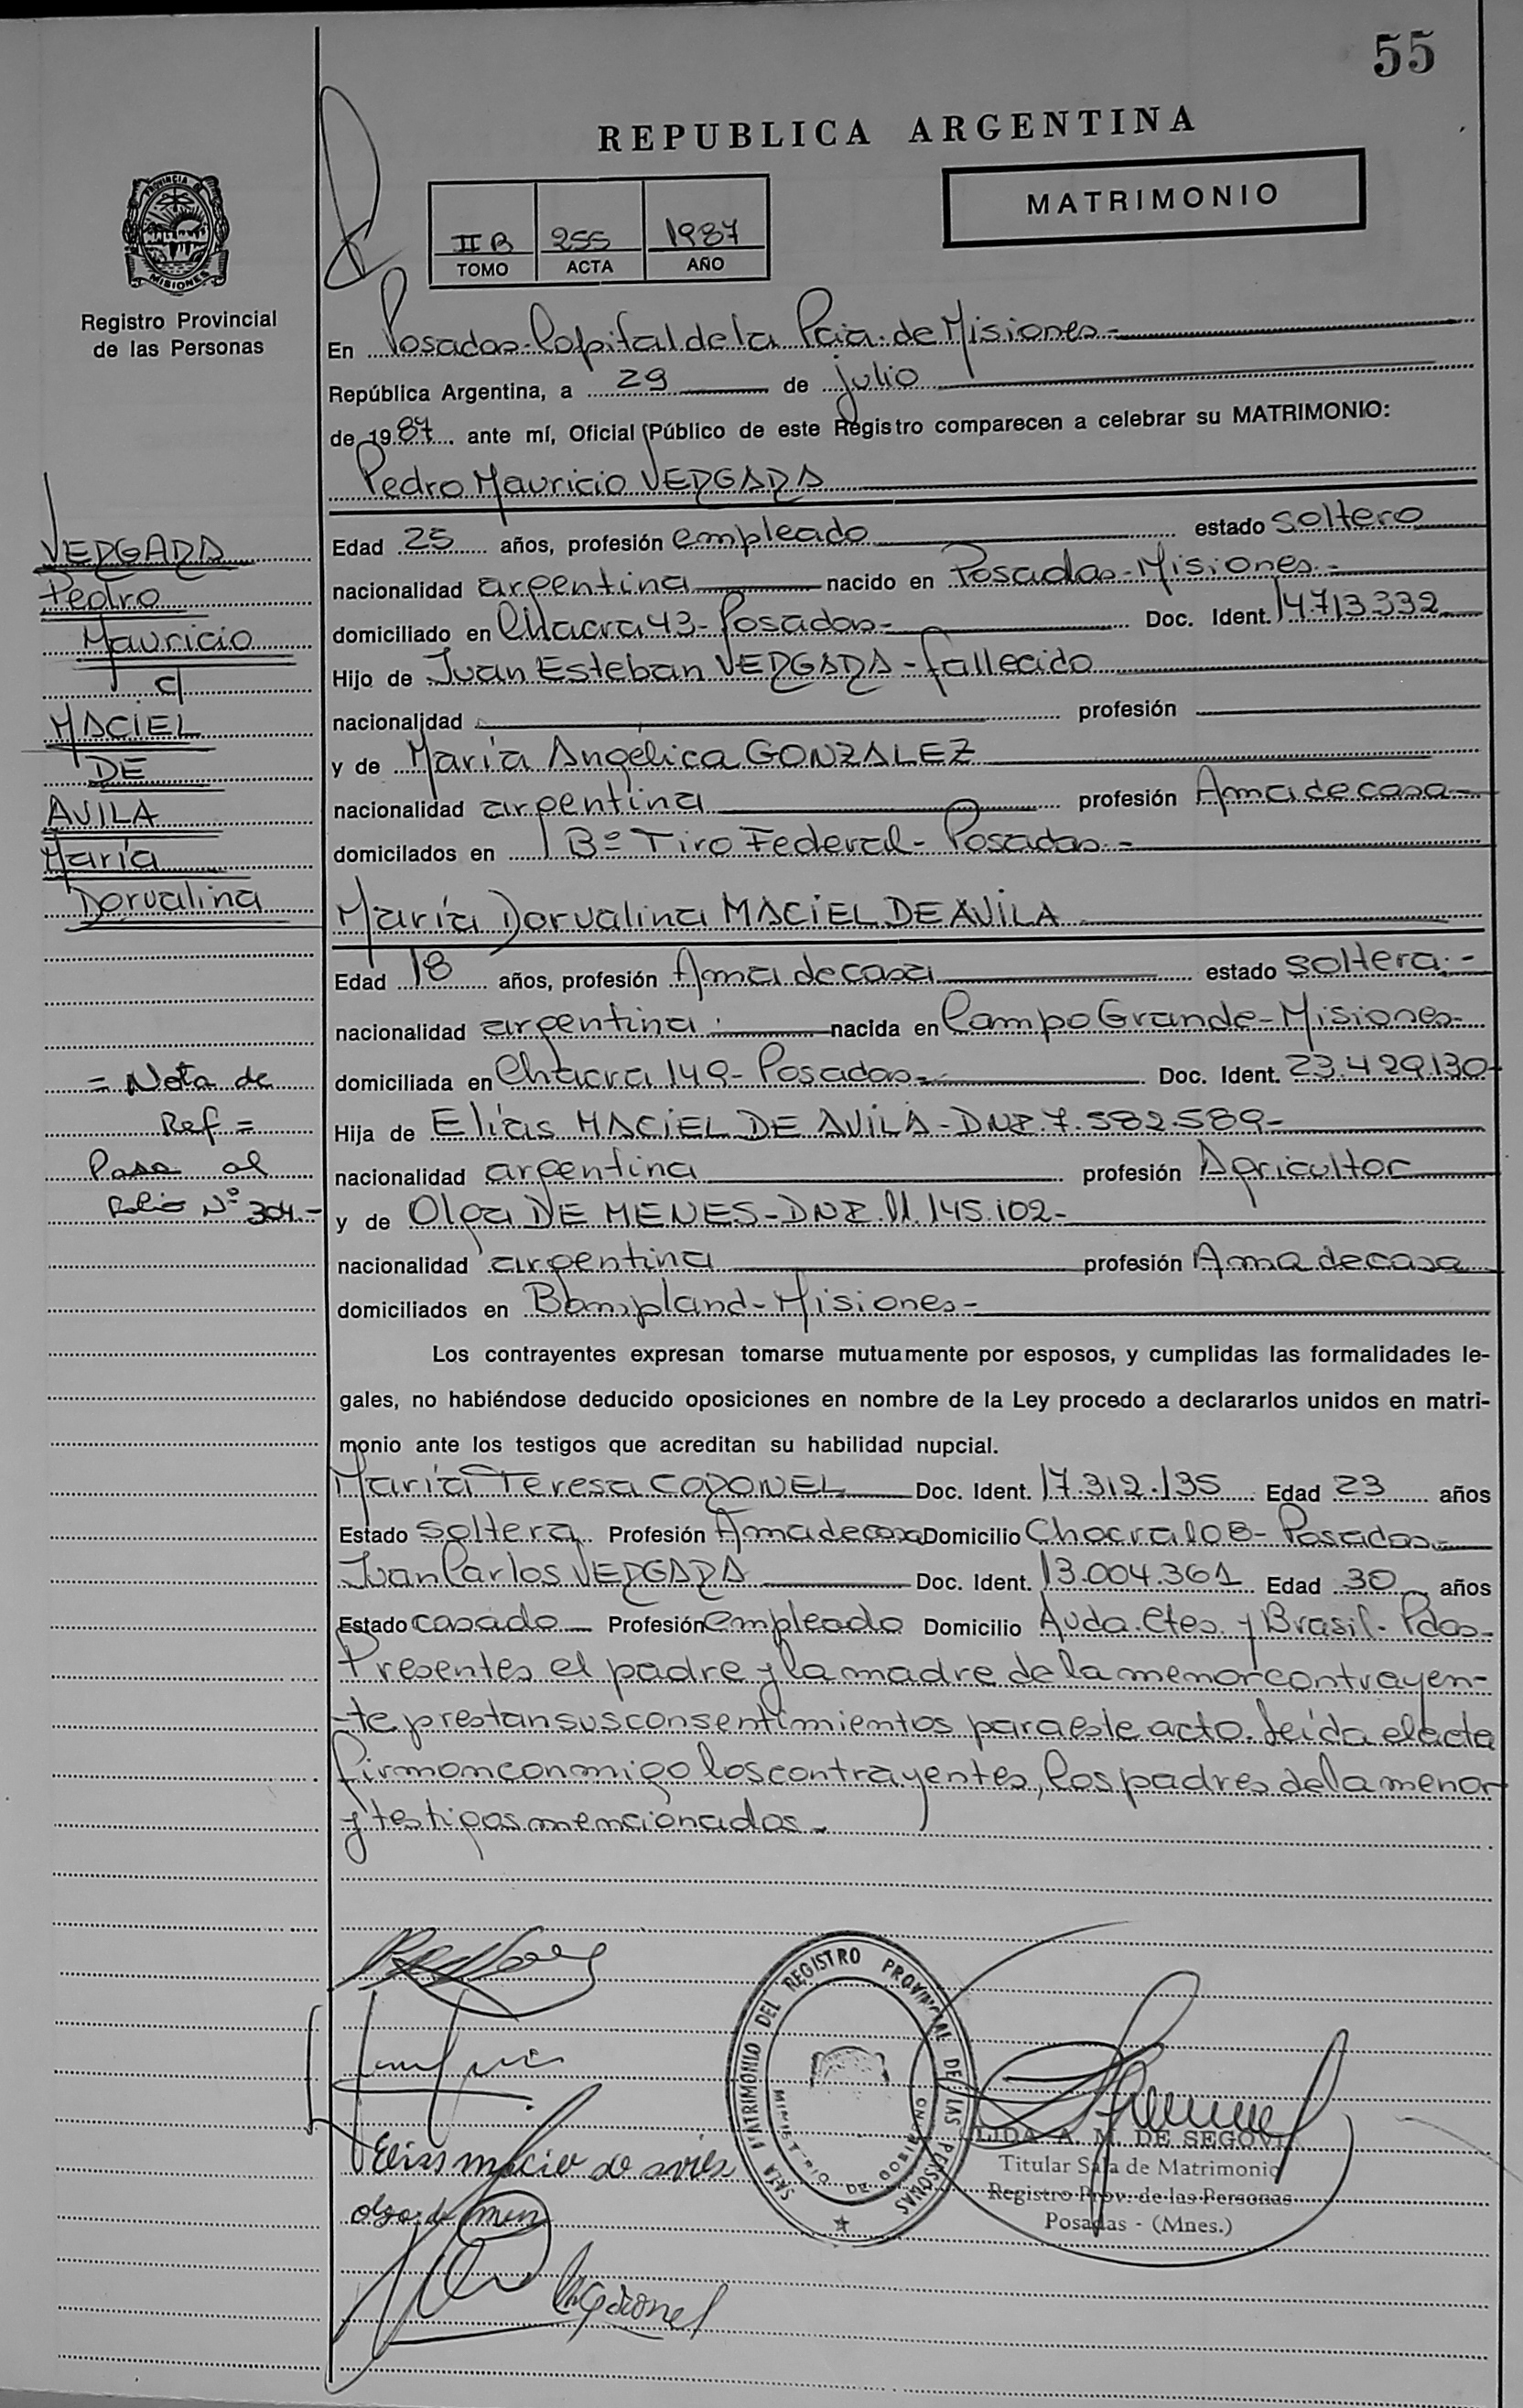 55
REPUBLICA ARGENTINA
MATRIMONIO
PROVINCIA DE
MISIONES
Registro Provincial
de las Personas
II B 255 1987
TOMO ACTA AÑO
En Posadas-Capital de la Pcia. de Misiones.-
República Argentina, a 29 de julio
de 1987 ante mí, Oficial Público de este Registro comparecen a celebrar su MATRIMONIO:
Pedro Mauricio VERGARA
VERGARA
Pedro
Mauricio
c/
MACIEL
DE
AVILA
María
Dorvalina
Edad 25 años, profesión empleado estado soltero
nacionalidad argentina nacido en Posadas-Misiones.-
domiciliado en Chacra 43-Posadas- Doc. Ident. 14.713.332
Hijo de Juan Esteban VERGARA-fallecido
nacionalidad profesión
y de María Angélica GONZALEZ
nacionalidad argentina profesión Ama de casa
domicilados en Bº Tiro Federal-Posadas.-
María Dorvalina MACIEL DE AVILA
Edad 18 años, profesión Ama de casa estado soltera.-
nacionalidad argentina nacida en Campo Grande-Misiones-
domiciliada en Chacra 149-Posadas- Doc. Ident. 23.429.130
Hija de Elías MACIEL DE AVILA-DNI.7.582.589-
nacionalidad argentina profesión Agricultor
y de Olga DE MENES-DNI.11.145.102-
nacionalidad argentina profesión Ama de casa
domiciliados en Bompland-Misiones-
= Nota de
Ref =
Pasa al
Folio Nº 304.-
Los contrayentes expresan tomarse mutuamente por esposos, y cumplidas las formalidades le-
gales, no habiéndose deducido oposiciones en nombre de la Ley procedo a declararlos unidos en matri-
monio ante los testigos que acreditan su habilidad nupcial.
María Teresa CORONEL Doc. Ident. 17.312.135 Edad 23 años
Estado soltera Profesión Ama de casa Domicilio Chacra 108-Posadas-
Juan Carlos VERGARA Doc. Ident. 13.004.361 Edad 30 años
Estado casado Profesión empleado Domicilio Avda. Ctes. y Brasil-Pdas-
Presentes el padre y la madre de la menor contrayen-
-te prestan sus consentimientos para este acto. Leída el acta
firman conmigo los contrayentes, los padres de la menor
y testigos mencionados.
SALA MATRIMONIO DEL REGISTRO PROVINCIAL DE LAS PERSONAS
MINISTERIO DE GOBIERNO
Elias maciel de avila
Coronel
LIDA A. M. DE SEGOVIA
Titular Sala de Matrimonio
Registro Prov. de las Personas
Posadas - (Mnes.)